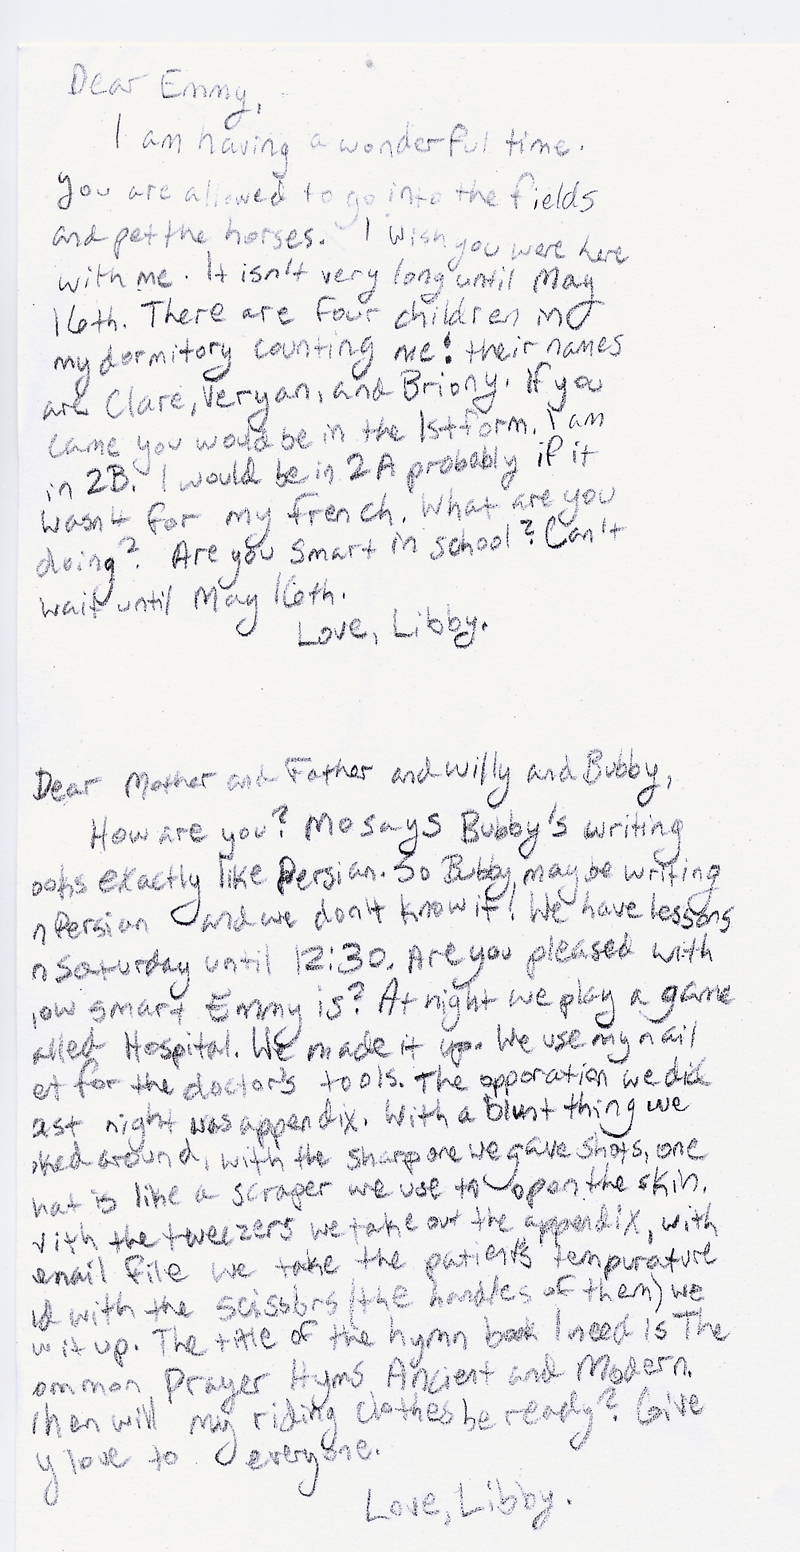 Dear Emmy,
I am having a wonderful time.
You are allowed to go into the fields
and pet the horses. I wish you were here
with me. It isn't very long until May
16th. There are four children in
my dormitory counting me! their names
are Clare, Veryan, and Briony. If you
came you would be in the 1st form. I am
in 2B. I would be in 2A probably if it
wasn't for my french. What are you
doing? Are you smart in school? Can't
wait until May 16th.
Love, Libby.
Dear Mother and Father and Willy and Bubby,
How are you? Mo says Bubby's writing
ooks exactly like Persian. So Bubby, may be writing
n Persian and we don't know it! We have lessons
n Saturday until 12:30. Are you pleased with
ow smart Emmy is? At night we play a game
alled Hospital. We made it up. We use my nail
et for the doctor's tools. The opporation we did
ast night was appendix. With a blunt thing we
oked around, with the sharp one we gave shots, one
hat is like a scraper we use to open the skin.
with the tweezers we take out the appendix, with
e nail file we take the patient's tempurature
d with the scissors (the handles of them) we
w it up. The title of the hymn book I need is The
ommon Prayer Hyms Ancient and Modern.
hen will my riding clothes be ready? Give
y love to everyone.
Love, Libby.